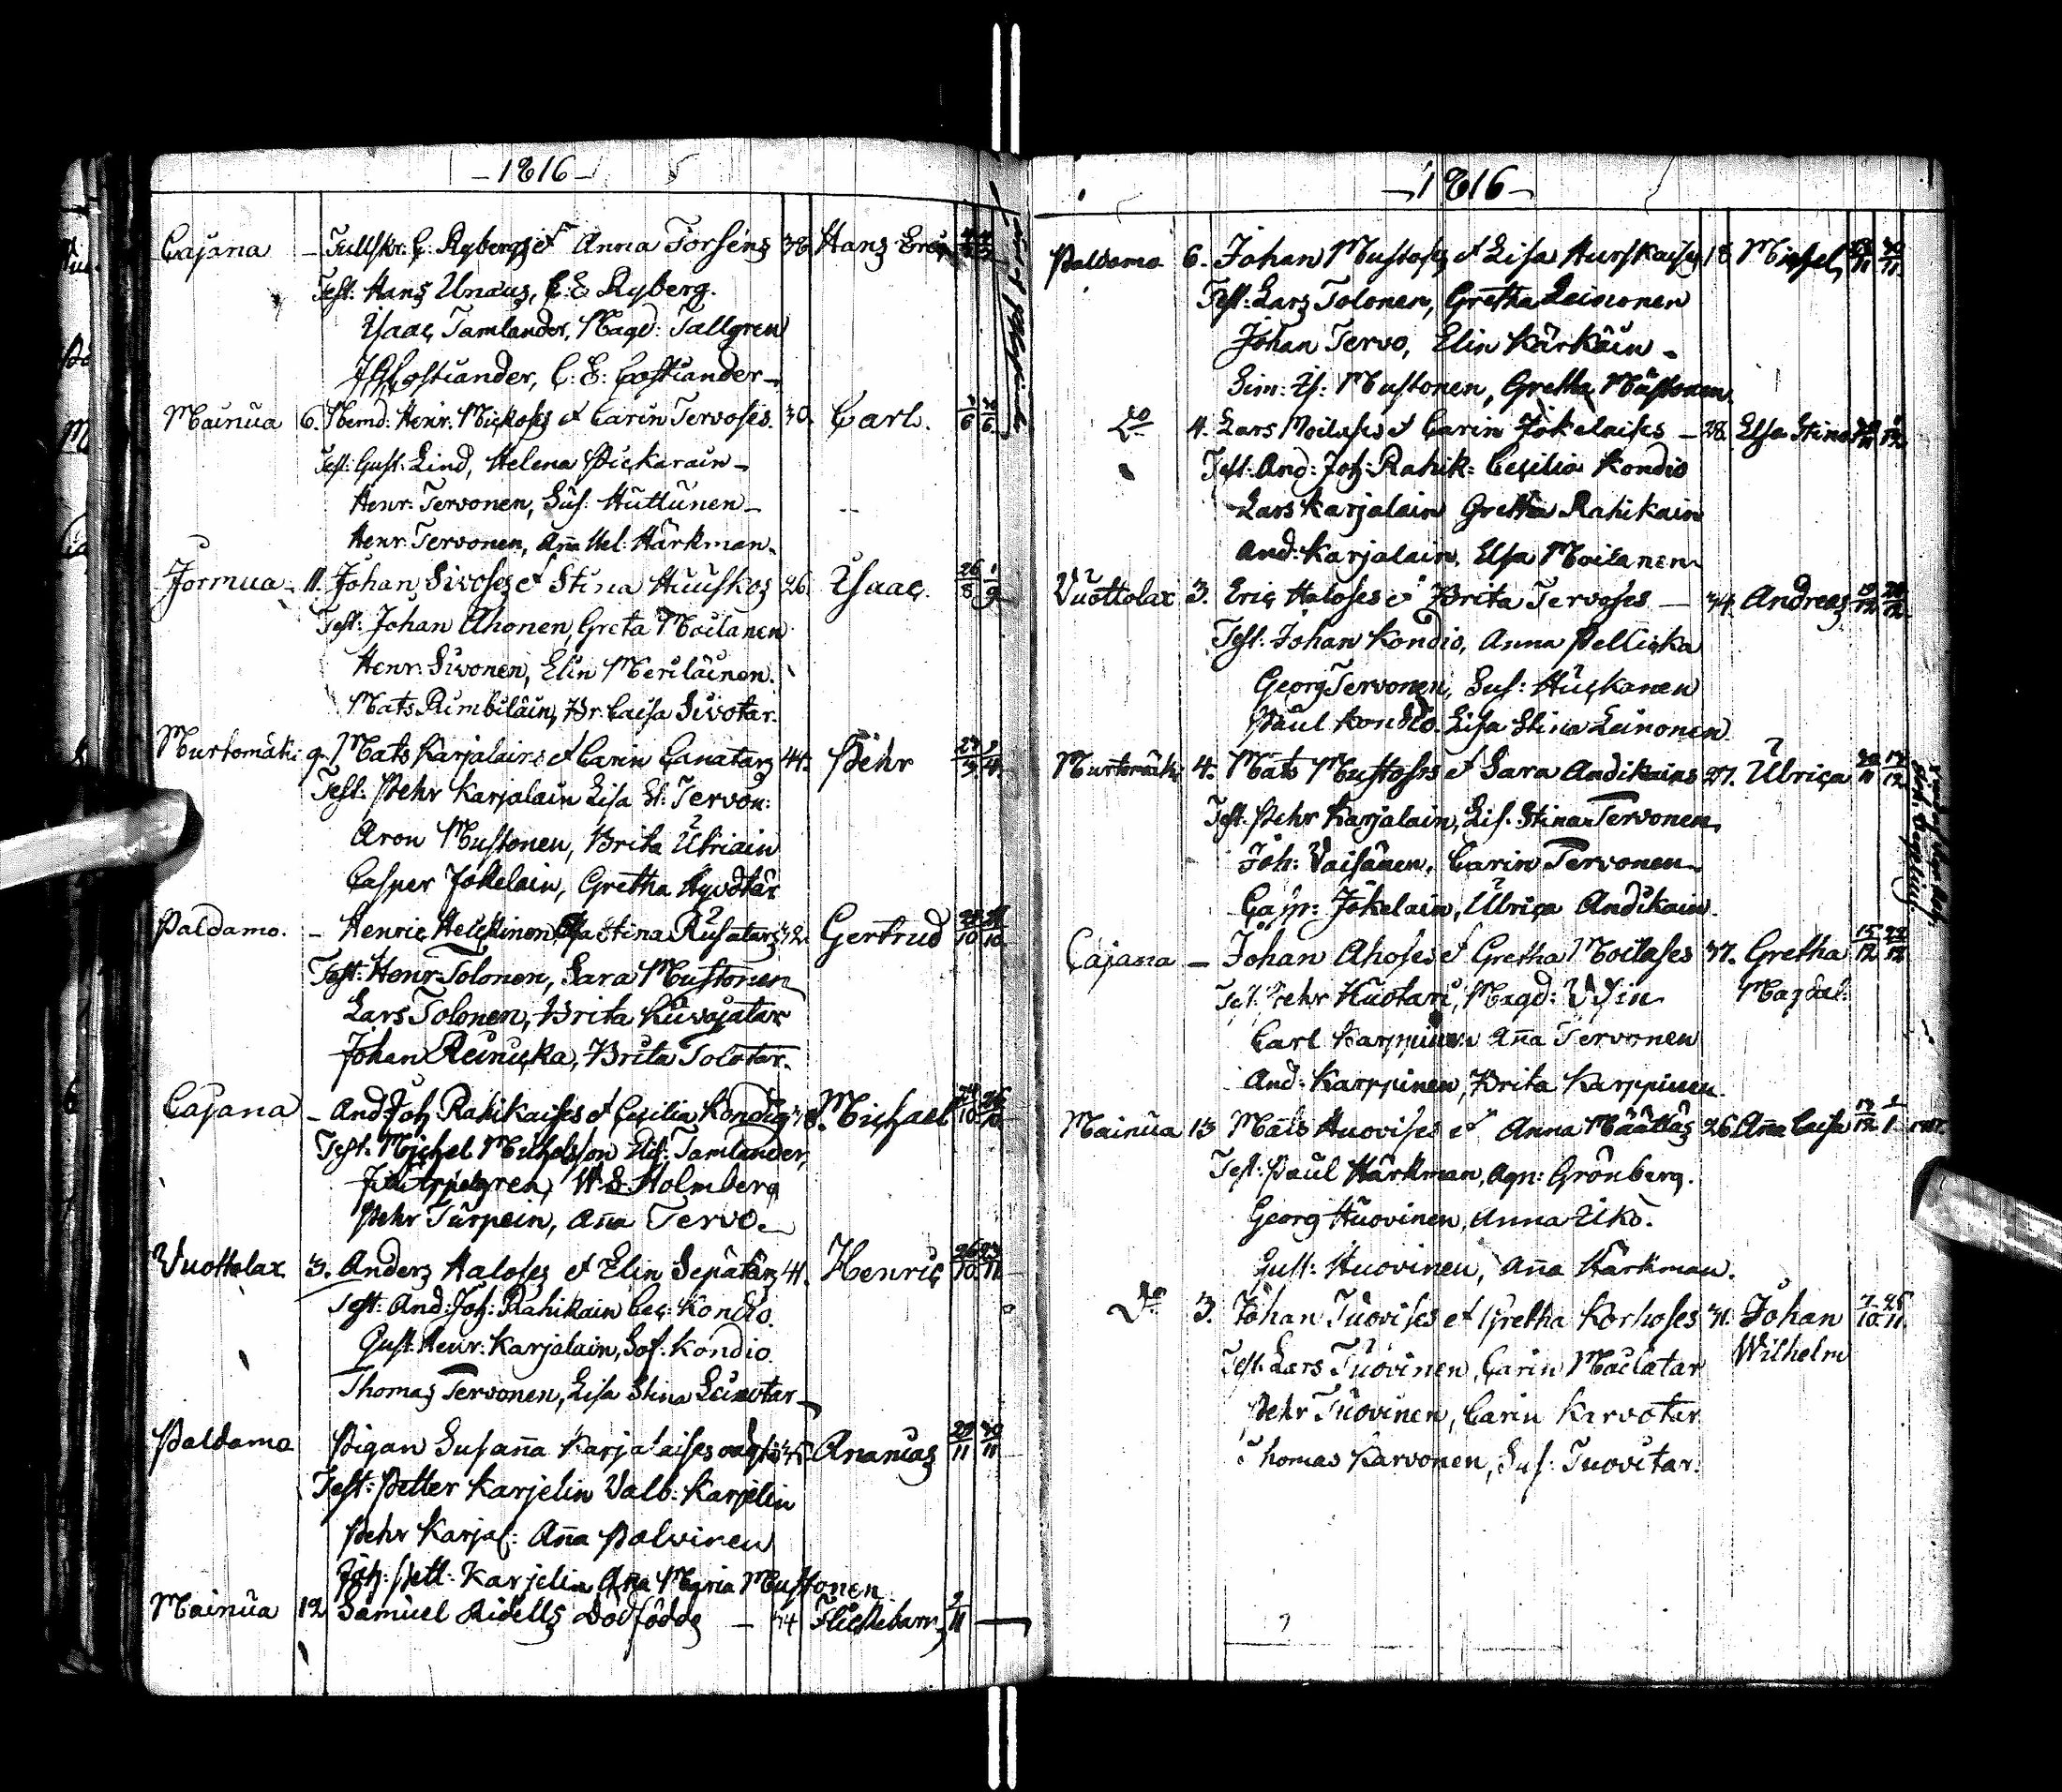 -1816-
Cajana - Tullskr. C: Rybergs et Anna Torsens 38. Hans Eric
Test: Hans Unaus, C: E Ryberg.
Isaac Tamlander, Magd: Tallgren
Costiander, C: E: Costiander
Mainua 6. Hemd. Henr: Mickoses et Carin Tervoses. 30. Carl.
Test: Gust: Lind, Helena Pickarain
Henr: Tervonen, Sus: Huttunen
Henr: Tervonen, Aña Hel: Härkman.
Jormua 11. Johan Sivoses et Stina Huuskos 26. Isaac. 26/8 1/9
Test: Johan Ahonen, Greta Moilanen
Henr: Sivonen, Elin Meriläinen.
Mats Rimbiläin, Br. Caisa Sivotar.
Murtomäki 9. Mats Karjalains et Carin Canatars 44. Pehr
Test: Pehr Karjalain Lisa St: Tervon:
Aron Mustonen, Brita Ulriain
Casper Jokelain, Gretha Hyvötär
Paldamo. - Henric Heickinen Stina 32. Gertrud
Test: Henr: Tolonen, Sara Mustonen
Lars Tolonen, Brita Kuvajatar
Johan Reinicka, Brita Tolotar.
Cajana - And: Joh: Rahikaises et Cecilia Kondios Michael
Test: Michel Michelsson Elis: Tamlander,
W: S: Holmberg
Pehr Turpein, aña Tervo.
Vuottolax 3. Anders Haloses et Elin Sepätärs 41. Henric
Test: And: Joh: Rahikain Cec: Kondio.
Gust. Henr: Karjalain, Sof: Kondio.
Thomas Tervonen, Lisa Stina Leinotar
Paldamo Pigan Susaña Karjalaises Ananias 29/11 30/11
Test: Petter Karjelin Valb: Karjelin
Pehr Karjal: Aña Polvinen
Joh: Pett: Karjelin Aña Maria Mustonen
Mainua 12 Samuel Ridells Dödfödde - 34 Flickebarn 9/11
-1816-
Paldamo 6. Johan Mustoses et Lisa Hurskaises 18. Michel
Test: Lars Tolonen, Gretha Leinonen
Johan Tervo, Elin Kärkäin
Sim: Is: Mustonen, Gretha Mustonen.
Do 4. Lars Moilases et Carin Jokelaises - 28. Elsa Stina
Test: And: Joh: Rahik: Cecilia Kondio
Lars Karjalain Gretha Rahikain
And: Karjalain, Elsa Moilanen
Vuottolax 3. Eric Haloses et Brita Tervoses - 34. Andreas
Test: Johan Kondio, Anna Pellicka
Georg Tervonen, Sus: Huckanen
Paul Kondio. Lisa Stina Leinonen
Murtomäki 4. Mats Mustoses et Sara Andikains 27. Ulrica
Test. Pehr Karjalain, Lis. Stina Tervonen.
Joh: Vaisänen, Carin Tervonen
Casp: Jokelain, Ulrica Andikain.
Cajana - Johan Ahoses et Gretha Moilases 37. Gretha 15/12 22/12
Test. Pehr Kuotari, Magd: Magdal:
Carl Karppinen Aña Tervonen
And: Karppinen, Brita Karppinen
Mainua 13 Mats Huovises et Anna Määttäs 26. Aña Caisa
Test: Paul Härkman, Agn: Grönberg.
Georg Huovinen, Anna Uko.
Gust: Huovinen, Aña Härkman.
Do 3. Johan Tuovises et Gretha Korhoses 31. Johan
Test: Lars Tuovinen, Carin Wilhelm
Pehr Tuovinen, Carin Karvotar
Thomas Karvonen, Sus: Tuovitar.